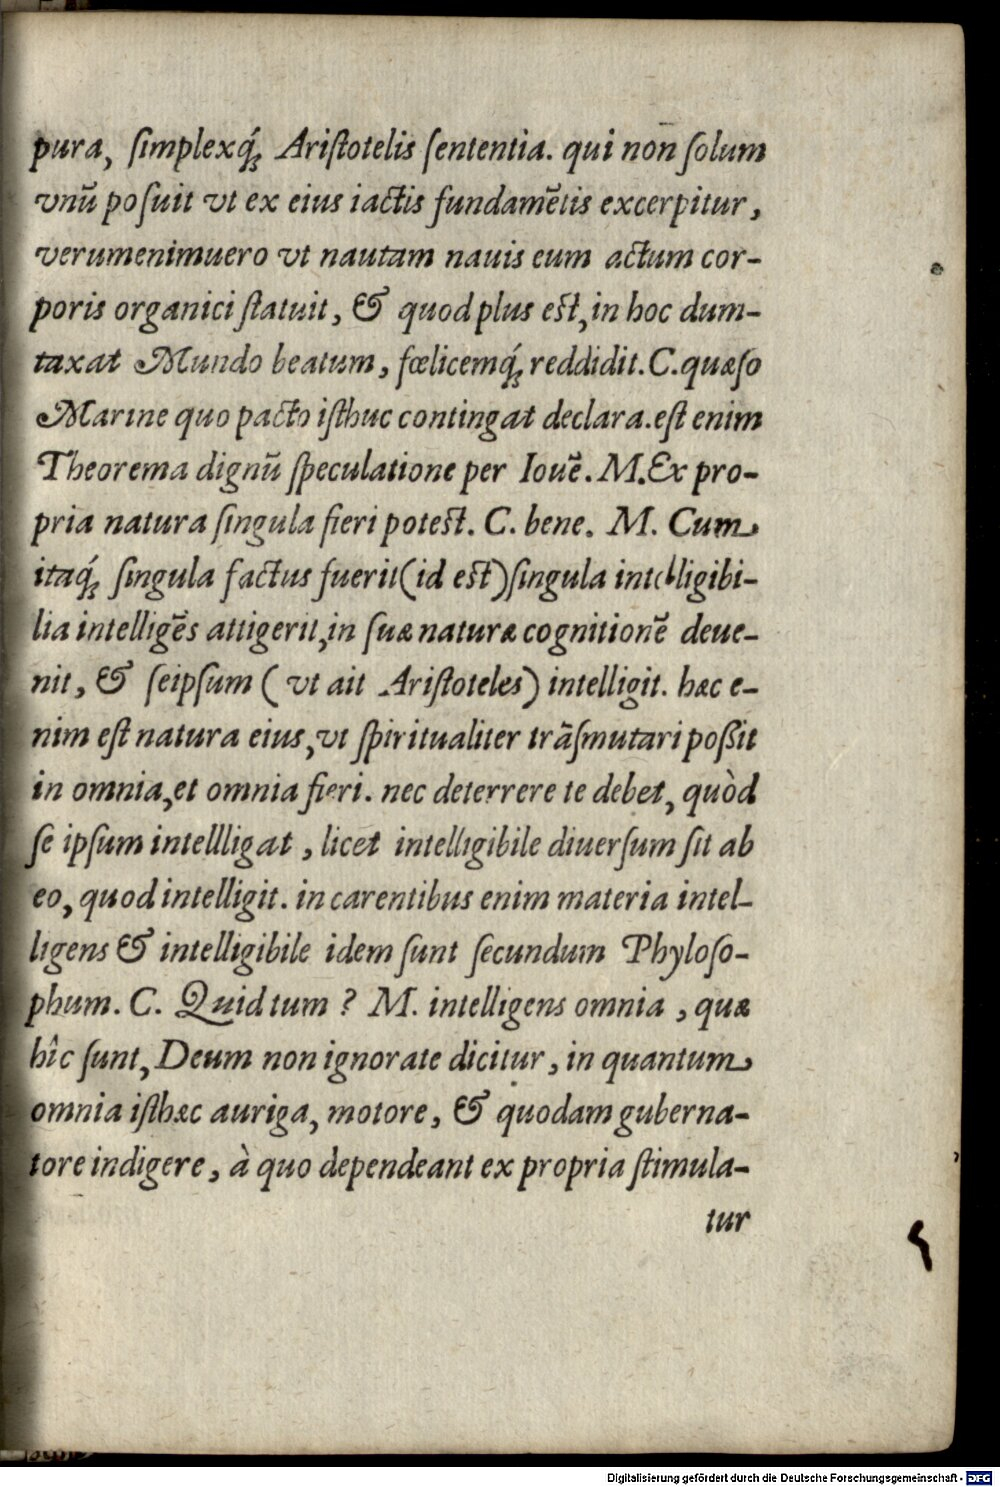 pura, simplexq́; Aristotelis sententia. qui non solum
vnū posuit vt ex eius iactis fundamētis excerpitur,
verumenimuero vt nautam nauis eum actum cor-
poris organici statuit, & quod plus est, in hoc dum-
taxat Mundo beatum, fœlicemq́; reddidit. C. quæso
Marine quo pacto isthuc contingat declara. est enim
Theorema dignū speculatione per Iouē. M. Ex pro-
pria natura singula fieri potest. C. bene. M. Cum
itaq́; singula factus fuerit (id est) singula intelligibi-
lia intelligēs attigerit, in suæ naturæ cognitionē deue-
nit, & seipsum ( vt ait Aristoteles) intelligit. hæc e-
nim est natura eius, vt spiritualiter trāsmutari poßit
in omnia, et omnia fieri. nec deterrere te debet, quòd
se ipsum intellligat, licet intelligibile diuersum sit ab
eo, quod intelligit. in carentibus enim materia intel-
ligens & intelligibile idem sunt secundum Phyloso-
phum. C. Quid tum ? M. intelligens omnia, quæ
hîc sunt, Deum non ignorate dicitur, in quantum
omnia isthæc auriga, motore, & quodam guberna-
tore indigere, à quo dependeant ex propria stimula-
tur
Digitalisierung gefördert durch die Deutsche Forschungsgemeinschaft - DFG